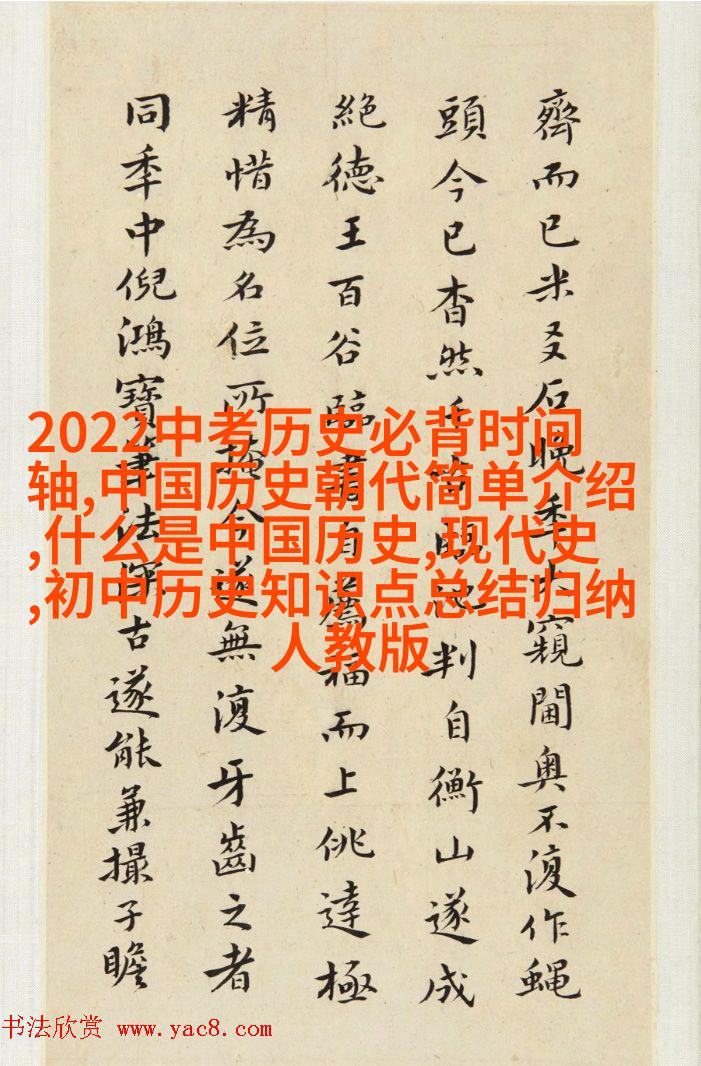 齊而已米叉石晚年大窺閫奧不復作蝇
頭今已杳然判自衡山遂成
絕德王百谷臨書自薦福而上佻達極
精惜為名位所掩今遂無復牙齒之者
同年中倪鴻寶筆法深古遂能兼撮子瞻
2022中考历史必背时间
轴,中国历史朝代简单介绍
,什么是中国历史,现代史
,初中历史知识点总结归纳
人教版
书法欣赏 www.yac8.com